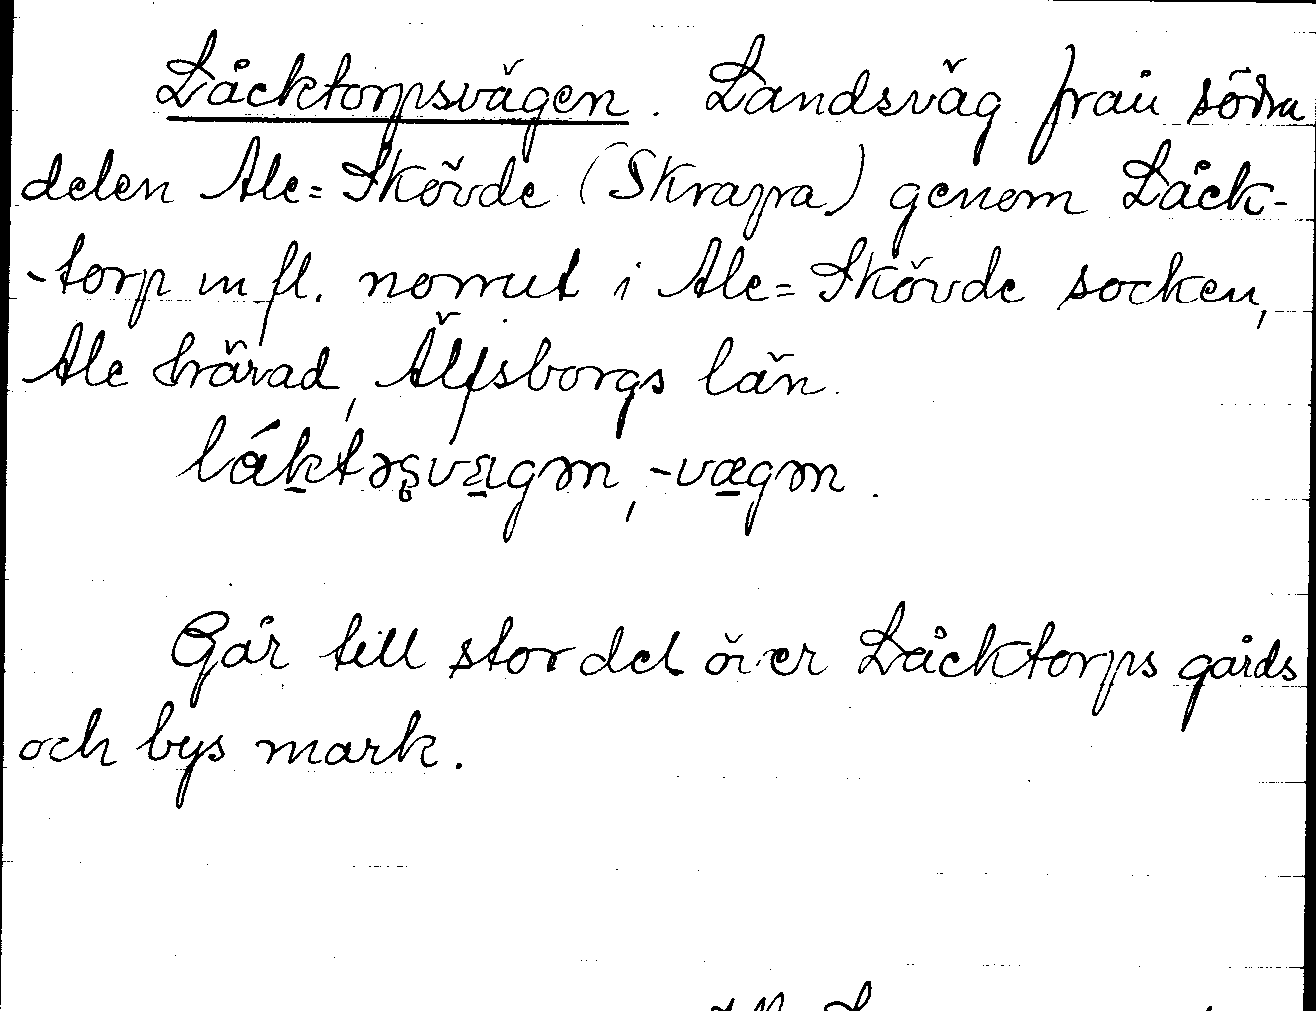 Låcktorpsvägen. Landsväg från södra
delen Ale-Skövde (Skrapra) genom Låck-
-torp m fl. norrut i Ale-Skövde socken,
Ale härad, Älfsborgs län.
Går till stor del över Låcktorps gårds
och bys mark.